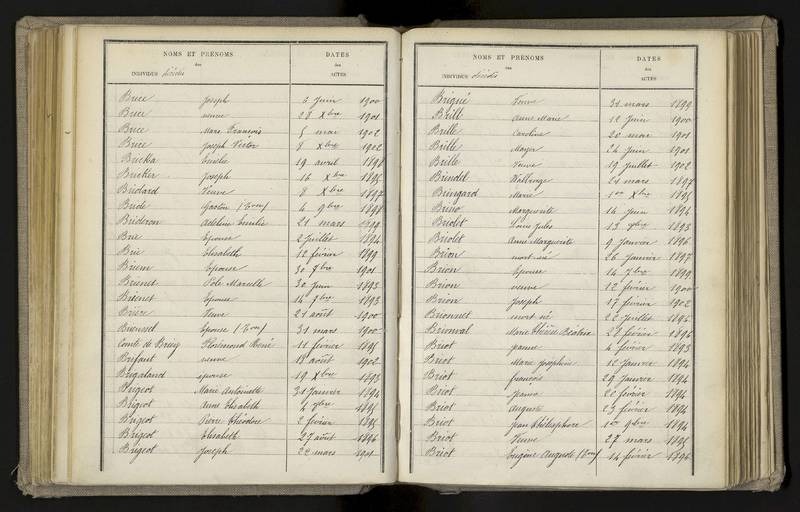 NOMS ET PRÉNOMS
des
INDIVIDUS décédés
DATES
des
ACTES
Brice Joseph 6 Juin 1900
Brice veuve 28 Xbre 1901
Brice Marc François 5 mai 1902
Brice Joseph Victor 8 Xbre 1902
Bricka Emilie 19 avril 1898
Joseph 16 Xbre 1895
Bridard Veuve 8 Xbre 1897
Bride Gaston 4 9bre 1898
Brideron Adeline Emilie 21 mars 1899
Brie Epouse 2 Juillet 1894
Brie Elisabeth 12 février 1899
Briem Epouse 30 1901
Brienet Pole Marcelle 30 Juin 1893
Brienet Epouse 14 9bre 1893
Brière Veuve 21 août 1900
Epouse 31 mars 1900
Comte de Briey Florimond René 11 février 1895
Brifaut veuve 18 août 1902
Brigaland epouse 19 Xbre 1893
Brigeot Marie Antoinette 31 Janvier 1894
Brigeot Anne Elisabeth 4 1895
Brigeot Pierre Théodore 2 février 1895
Brigeot Elisabeth 27 août 1896
Brigeot Joseph 22 mars 1901
NOMS ET PRÉNOMS
des
INDIVIDUS décédés
DATES
des
ACTES
Brigué Veuve 31 mars 1899
Brill Anne Marie 12 Juin 1900
Brille Caroline 20 mai 1901
Brille Mayer 24 Juin 1901
Brille Veuve 19 Juillet 1902
Brindel Walburge 21 mars 1897
Bringard Marie 1er Xbre 1895
Brino Marguerite 14 Juin 1894
Briolet Louis Jules 13 1893
Briolet Anne Marguerite 9 Janvier 1896
Brion mort-né 26 Janvier 1897
Brion Epouse 14 1899
Brion veuve 12 février 1900
Brion Joseph 17 février 1902
Brionnet mort né 22 Juillet 1896
Brionval Marie Thérèse Béatrix 28 février 1896
Briot 4 février 1893
Briot Marie Josephine 12 Janvier 1894
Briot François 29 Janvier 1894
Briot Jeanne 20 février 1894
Briot Auguste 23 février 1894
Briot Jean Thélesphore 1er 9bre 1894
Briot Veuve 27 mars 1895
Briot Eugène Auguste 14 février 1896